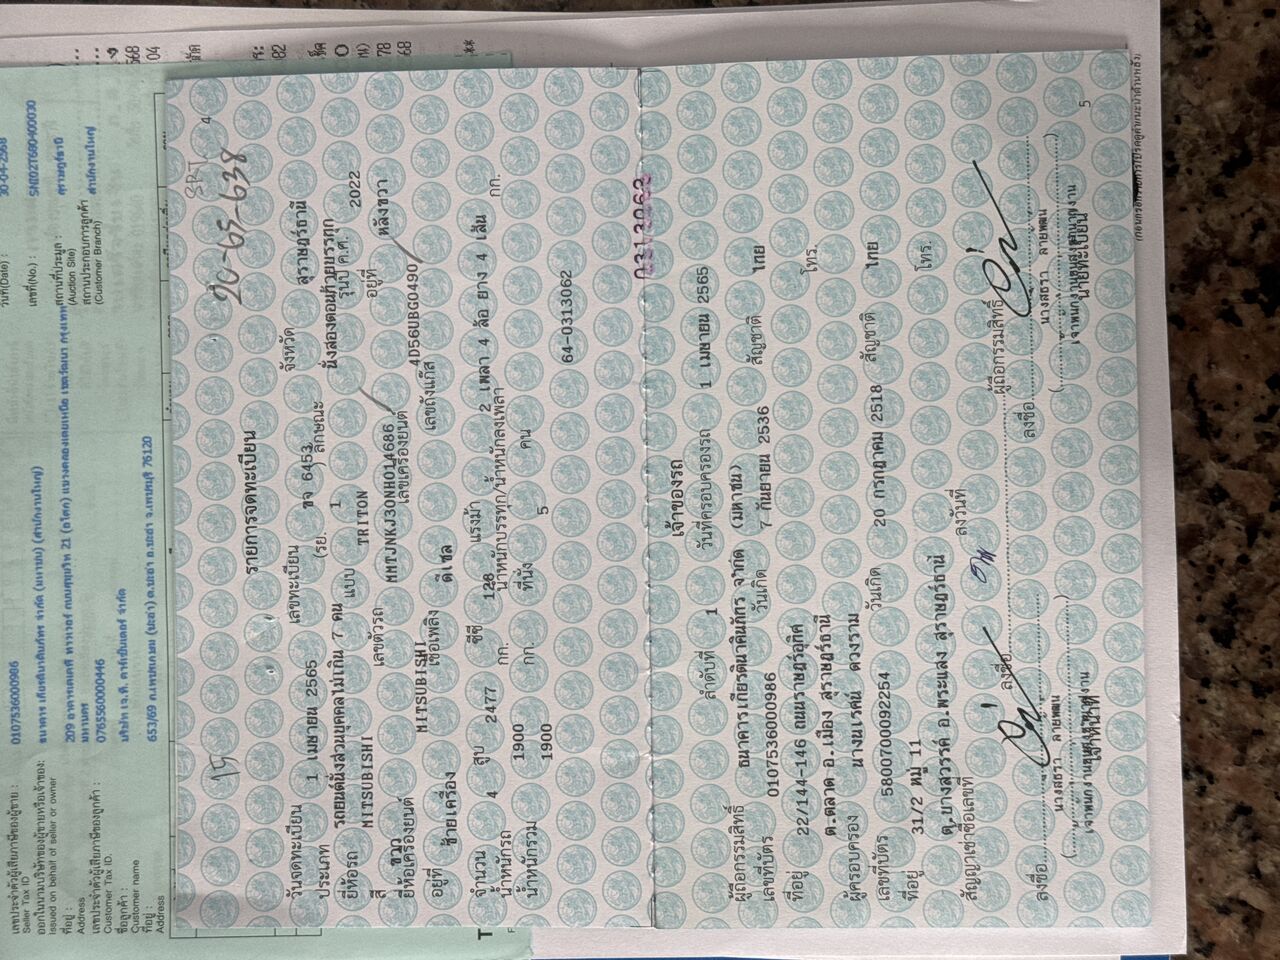 วันที่(Date) : 30-04-2568
เลขที่(No.) : SNI02T680400030
สถานที่ประมูล : สุราษฎร์ธานี
(Auction Site)
สถานประกอบการลูกค้า สำนักงานใหญ่
(Customer Branch)
เลขประจำตัวผู้เสียภาษีของผู้ขาย : 0107536000986
Seller Tax ID
ออกในนามบริษัทของผู้ขายหรือเจ้าของ: ธนาคาร เกียรตินาคินภัทร จำกัด (มหาชน) (สำนักงานใหญ่)
Issued on behalf of seller or owner
ที่อยู่ : 209 อาคารเคเคพี ทาวเวอร์ ถนนสุขุมวิท 21 (อโศก) แขวงคลองเตยเหนือ เขตวัฒนา กรุงเทพ
Address มหานคร
เลขประจำตัวผู้เสียภาษีของลูกค้า : 0765560000446
Customer Tax ID.
ชื่อลูกค้า :
Customer name
ที่อยู่ : 653/69 ถ.เพชรเกษม (ชะอำ) ต.ชะอำ อ.ชะอำ จ.เพชรบุรี 76120
Address
4
15
20-65-638
รายการจดทะเบียน
วันจดทะเบียน 1 เมษายน 2565 เลขทะเบียน ขจ 6453 จังหวัด สุราษฎร์ธานี
ประเภท รถยนต์นั่งส่วนบุคคลไม่เกิน 7 คน (รย. 1 ) ลักษณะ นั่งสองตอนท้ายบรรทุก
ยี่ห้อรถ MITSUBISHI แบบ TRITON รุ่นปี ค.ศ. 2022
สี ขาว เลขตัวรถ MMTJNKJ30NH014686 อยู่ที่ หลังขวา
ยี่ห้อเครื่องยนต์ MITSUBISHI เลขเครื่องยนต์ 4D56UBG0490
อยู่ที่ ซ้ายเครื่อง เชื้อเพลิง ดีเซล เลขถังแก๊ส
จำนวน 4 สูบ 2477 ซีซี 126 แรงม้า 2 เพลา 4 ล้อ ยาง 4 เส้น
น้ำหนักรถ 1900 กก. น้ำหนักบรรทุก/น้ำหนักลงเพลา กก.
น้ำหนักรวม 1900 กก. ที่นั่ง 5 คน
64-0313062
0313062
เจ้าของรถ
ลำดับที่ 1 วันที่ครอบครองรถ 1 เมษายน 2565
ผู้ถือกรรมสิทธิ์ ธนาคารเกียรตินาคินภัทร จำกัด (มหาชน)
เลขที่บัตร 0107536000986 วันเกิด 7 กันยายน 2536 สัญชาติ ไทย
ที่อยู่ 22/144-146 ถนนราษฎร์อุทิศ โทร.
ต.ตลาด อ.เมือง สุราษฎร์ธานี
ผู้ครอบครอง นางนเรศน์ ดวงราม
เลขที่บัตร 5800700092254 วันเกิด 20 กรกฎาคม 2518 สัญชาติ ไทย
ที่อยู่ 31/2 หมู่ 11 โทร.
ต.บางสวรรค์ อ.พระแสง สุราษฎร์ธานี
สัญญาเช่าซื้อเลขที่ ลงวันที่ ผู้ถือกรรมสิทธิ์
ลงชื่อ ลงชื่อ ลงชื่อ
เจ้าหน้าที่ นายทะเบียน
5